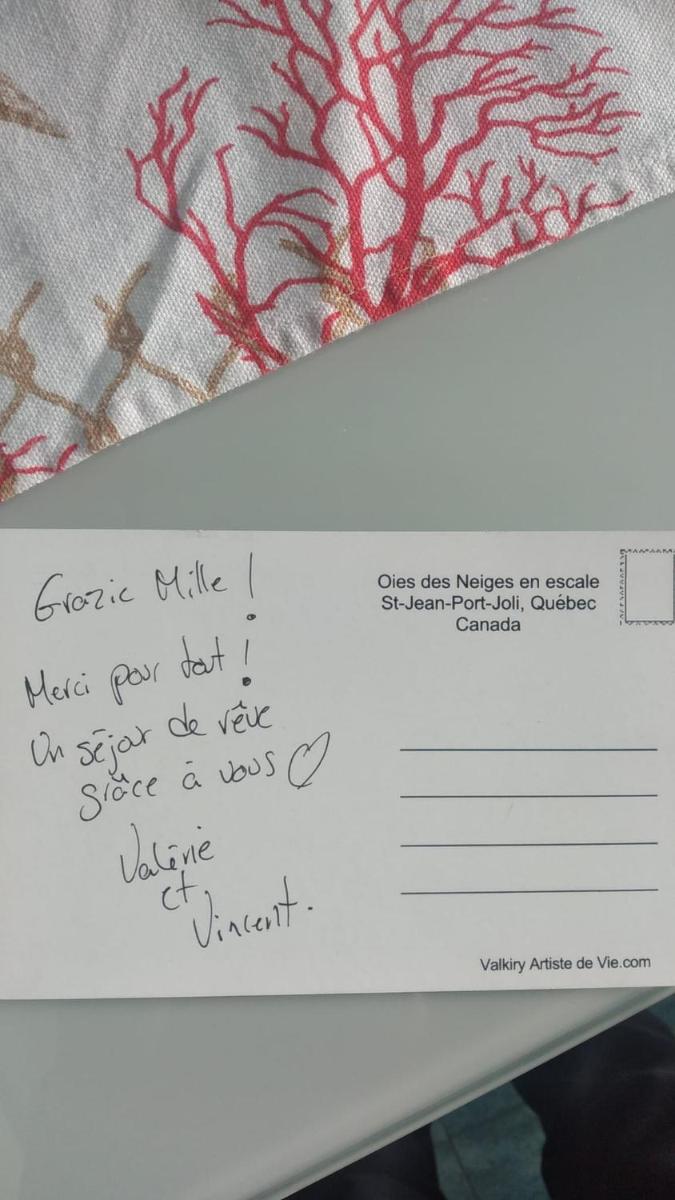 Grazie Mille !
Merci pour tout !
Un séjour de rêve
grâce à vous ♡
Valérie
et
Vincent.
Oies des Neiges en escale
St-Jean-Port-Joli, Québec
Canada
Valkiry Artiste de Vie.com